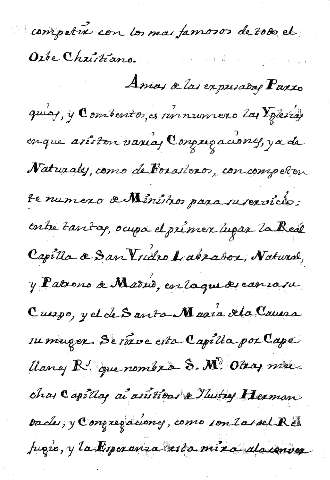 competir con los mas famosos de todo el
Orbe Christiano.
Amas de las expresadas Parro
quias, y Combentos, es sin numero las Yglesias
en que asisten varias Congregaciones, ya de
Naturales, como de Forasteros, con competen
te numero de Ministros para su servicio:
entre tantas, ocupa el primer lugar la Real
Capilla de San Ysidro Labrador, Natural,
y Patrono de Madrid, en la que descansa su
Cuerpo, y el de Santa Maria de la Caveza
su muger. Se sirve esta Capilla por Cape
llanes Rs. que nombra S. M. Otras mu
chas Capillas ai asistidas de Ylustres Herman
dades, y Congregaciones, como son las del Re
fugio, y la Esperanza esta mira a la conver